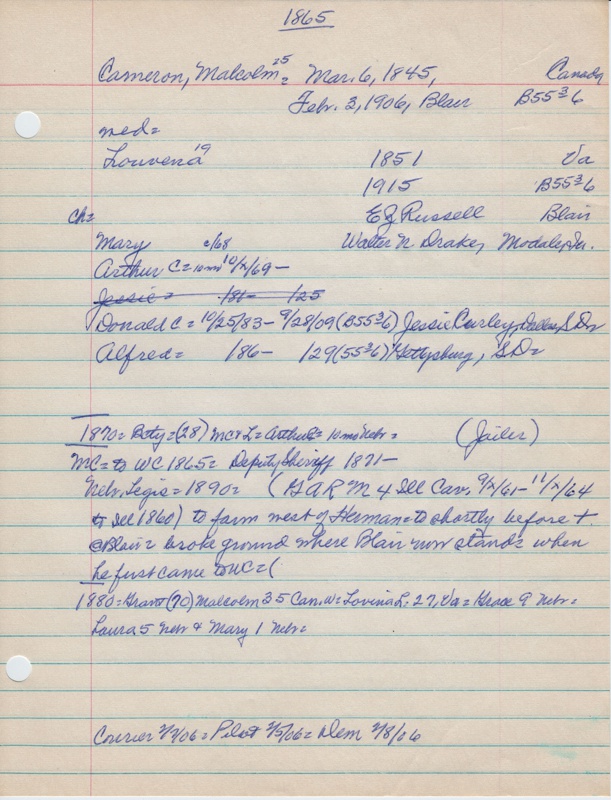 1865
Cameron, Malcolm 25 = Mar. 6, 1845, Canada
Feb. 3, 1906, Blair B55 3/4 6
med=
Louvena 19 1851 Va
1915 B55 3/4 6
ch= EJ Russell Blair
Mary c/68 Walter N. Drake, Modale, Ia.
Arthur C= 10 mo 10/x/69 -
Jessie= 186- /25
Donald C = 10/25/83 - 9/28/09 (B55 3/4 6) Jessie Curley, Dallas, S.D=
Alfred= 186- /29 (55 3/4 6) Gettysburg, S.D=
1870= Boty= (28) MC & L= Arthur= 10 mo Nebr= (Jailer)
MC= to WC 1865= Deputy Sheriff 1871-
Nebr. Legis= 1890= (GAR M 4 Ill Cav. 9/x/61 - 11/x/64
to Ill 1860) to farm west of Herman= to shortly before +
@ Blair= broke ground where Blair now stands= when
he first came to WC= (
1880= Grant (70) Malcolm 35 Can. w= Lovina L. 27, Va= Grace 9 Nebr=
Laura 5 Nebr & Mary 1 Nebr=
Courier 2/ /06= Pilot 2/5/06= Dem 2/8/06